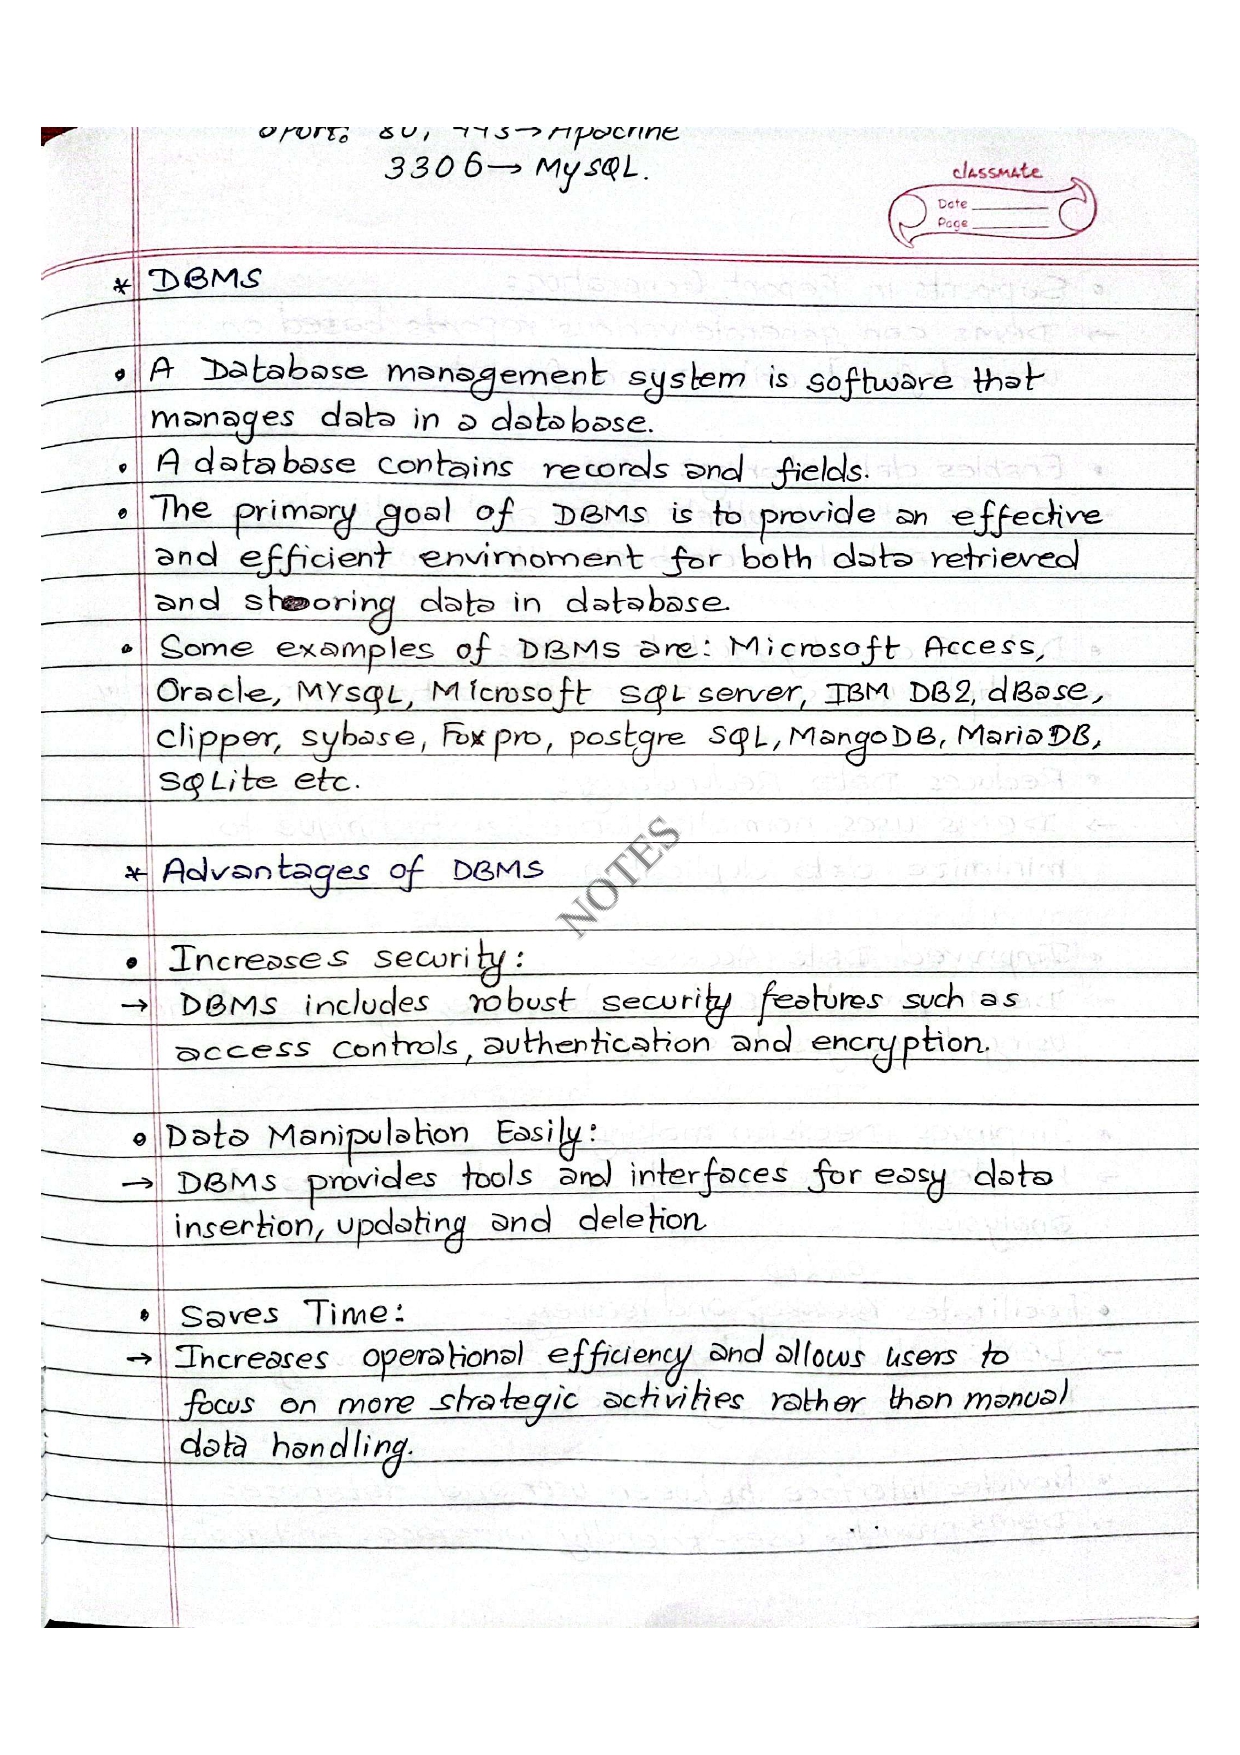 port: 80, 443→Apache
3306→ MySQL.
classmate
Date
Page
* DBMS
• A Database management system is software that
manages data in a database.
• A database contains records and fields.
• The primary goal of DBMS is to provide an effective
and efficient envirnoment for both data retrieved
and storing data in database.
• Some examples of DBMS are: Microsoft Access,
Oracle, MYSQL, Microsoft SQL server, IBM DB2, dBase,
clipper, sybase, Foxpro, postgre SQL, MangoDB, MariaDB,
SQLite etc.
NOTES
* Advantages of DBMS
• Increases security:
→ DBMS includes robust security features such as
access controls, authentication and encryption.
• Data Manipulation Easily:
→ DBMS provides tools and interfaces for easy data
insertion, updating and deletion
• Saves Time:
→ Increases operational efficiency and allows users to
focus on more strategic activities rather than manual
data handling.